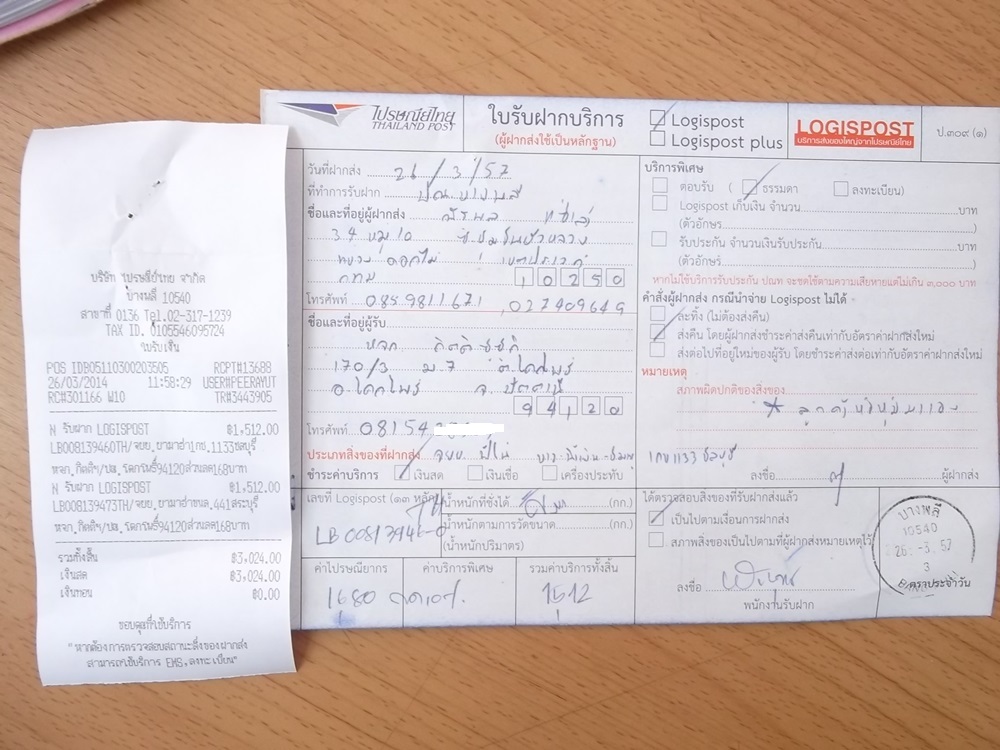 บริษัท ไปรษณีย์ไทย จำกัด
บางพลี 10540
สาขาที่ 0136 Tel.02-317-1239
TAX ID. 0105546095724
ใบรับเงิน
POS IDB05110300203505 RCPT#13688
26/03/2014 11:58:29 USER#PEERAYUT
RC#301166 W10 TR#3443905
N รับฝาก LOGISPOST ฿1,512.00
LB008139460TH/จยย.ยามาฮ่า1กข.1133ชลบุรี
หจก.กิตติฯ/ปส.โคกโพธิ์94120ส่วนลด168บาท
N รับฝาก LOGISPOST ฿1,512.00
LB008139473TH/จยย.ยามาฮ่าขนล.441สระบุรี
หจก.กิตติฯ/ปส.โคกโพธิ์94120ส่วนลด168บาท
รวมทั้งสิ้น ฿3,024.00
เงินสด ฿3,024.00
เงินทอน ฿0.00
ขอบคุณที่ใช้บริการ
"หากต้องการตรวจสอบสถานะสิ่งของฝากส่ง
สามารถใช้บริการ EMS,ลงทะเบียน"
ไปรษณีย์ไทย
THAILAND POST
ใบรับฝากบริการ
(ผู้ฝากส่งใช้เป็นหลักฐาน)
Logispost
Logispost plus
LOGISPOST
บริการส่งของใหญ่จากไปรษณีย์ไทย
ป.๓๐๙ (๑)
วันที่ฝากส่ง 26/3/57
ที่ทำการรับฝาก ปณ.บางพลี
ชื่อและที่อยู่ผู้ฝากส่ง
34 หมู่ 10
แขวง ดอกไม้ เขตประเวศ
กทม 10250
โทรศัพท์ 0859811671, 027409649
ชื่อและที่อยู่ผู้รับ
หจก กิตติ
170/3 ม.7 ต.โคกโพธิ์
อ.โคกโพธิ์ จ.ปัตตานี
94120
โทรศัพท์ 08154
ประเภทสิ่งของที่ฝากส่ง จยย.
ชำระค่าบริการ เงินสด เงินเชื่อ เครื่องประทับ
เลขที่ Logispost (๑๓ หลัก)
LB00813946-0
น้ำหนักที่ชั่งได้ (กก.)
น้ำหนักตามการวัดขนาด (กก.)
(น้ำหนักปริมาตร)
ค่าไปรษณียากร ค่าบริการพิเศษ รวมค่าบริการทั้งสิ้น
1680 1512
บริการพิเศษ
ตอบรับ ( ธรรมดา ลงทะเบียน)
Logispost เก็บเงิน จำนวน บาท
(ตัวอักษร )
รับประกัน จำนวนเงินรับประกัน บาท
(ตัวอักษร )
หากไม่ใช้บริการรับประกัน ปณท จะชดใช้ตามความเสียหายแต่ไม่เกิน ๓,๐๐๐ บาท
คำสั่งผู้ฝากส่ง กรณีนำจ่าย Logispost ไม่ได้
ละทิ้ง (ไม่ต้องส่งคืน)
ส่งคืน โดยผู้ฝากส่งชำระค่าส่งคืนเท่ากับอัตราค่าฝากส่งใหม่
ส่งต่อไปที่อยู่ใหม่ของผู้รับ โดยชำระค่าส่งต่อเท่ากับอัตราค่าฝากส่งใหม่
หมายเหตุ
สภาพผิดปกติของสิ่งของ
* ลูกค้าหีบห่อมาเอง
1กข1133 ชลบุรี
ลงชื่อ ผู้ฝากส่ง
ได้ตรวจสอบสิ่งของที่รับฝากส่งแล้ว
เป็นไปตามเงื่อนการฝากส่ง
สภาพสิ่งของเป็นไปตามที่ผู้ฝากส่งหมายเหตุไว้
ลงชื่อ
พนักงานรับฝาก
บางพลี
10540
26.-3.57
3
ตราประจำวัน